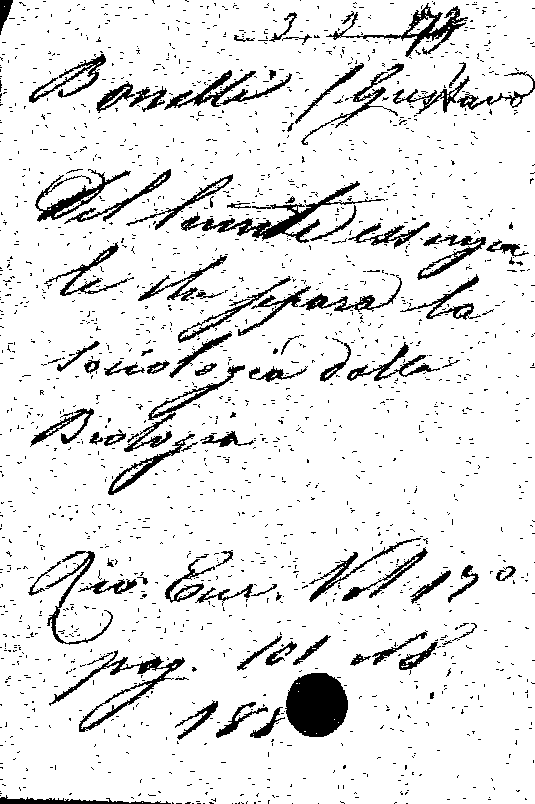 3. 3. 173
Bonelli (Gustavo
Del limite essenzia
le che separa la
sociologia dalla
Biologia
Riv. Eur. Vol 17º
pag. 101
188